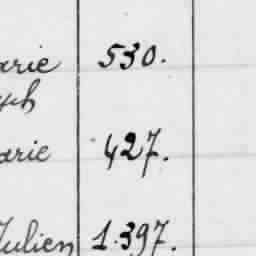 arie 530.
arie 427.
Julien 1.397.